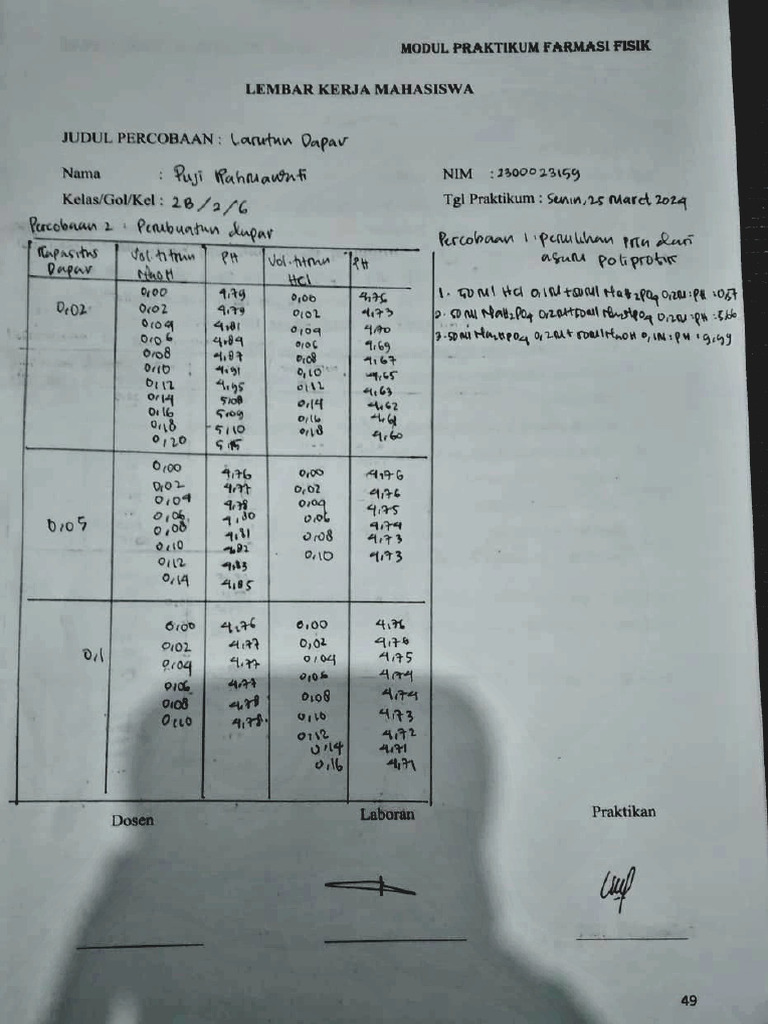 MODUL PRAKTIKUM FARMASI FISIK
LEMBAR KERJA MAHASISWA
JUDUL PERCOBAAN : Larutan Dapar
Nama : Puji Rahmawati
NIM : 2300023159
Kelas/Gol/Kel : 2B/2/6
Tgl Praktikum : Senin, 25 Maret 2024
Percobaan 2 : Pembuatan dapar
Percobaan 1 : pemilihan pKa dari
asam poliprotik
1. 50 ml HCl 0,1M + 50 ml NaH2PO4 0,2M : PH :
2. 50 ml NaH2PO4 0,2M + 50ml Na2HPO4 0,2M : PH :
3. 50 ml Na2HPO4 0,2M + 50ml NaOH 0,1M : PH : 9,99
Kapasitas Dapar Vol. titran NaOH PH Vol. titran HCl PH
0,02
0,00 4,79 0,00 4,75
0,02 4,79 0,02 4,73
0,04 4,81 0,04 4,70
0,06 4,84 0,06 4,69
0,08 4,87 0,08 4,67
0,10 4,91 0,10 4,65
0,12 4,95 0,12 4,63
0,14 5,08 0,14 4,62
0,16 5,09 0,16 4,61
0,18 5,10 0,18 4,60
0,20 5,15
0,05
0,00 4,76 0,00 4,76
0,02 4,77 0,02 4,76
0,04 4,78 0,04 4,75
0,06 4,80 0,06 4,74
0,08 4,81 0,08 4,73
0,10 4,82 0,10 4,73
0,12 4,83
0,14 4,85
0,1
0,00 4,76 0,00 4,76
0,02 4,77 0,02 4,76
0,04 4,77 0,04 4,75
0,06 4,77 0,06 4,74
0,08 4,78 0,08 4,74
0,10 4,78 0,10 4,73
0,12 4,72
0,14 4,71
0,16 4,71
Dosen Laboran Praktikan
49